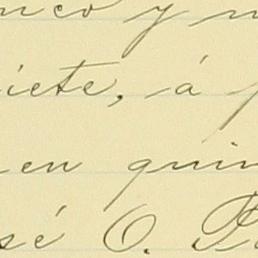 nco y m
iete, á
en quin
sé O. P